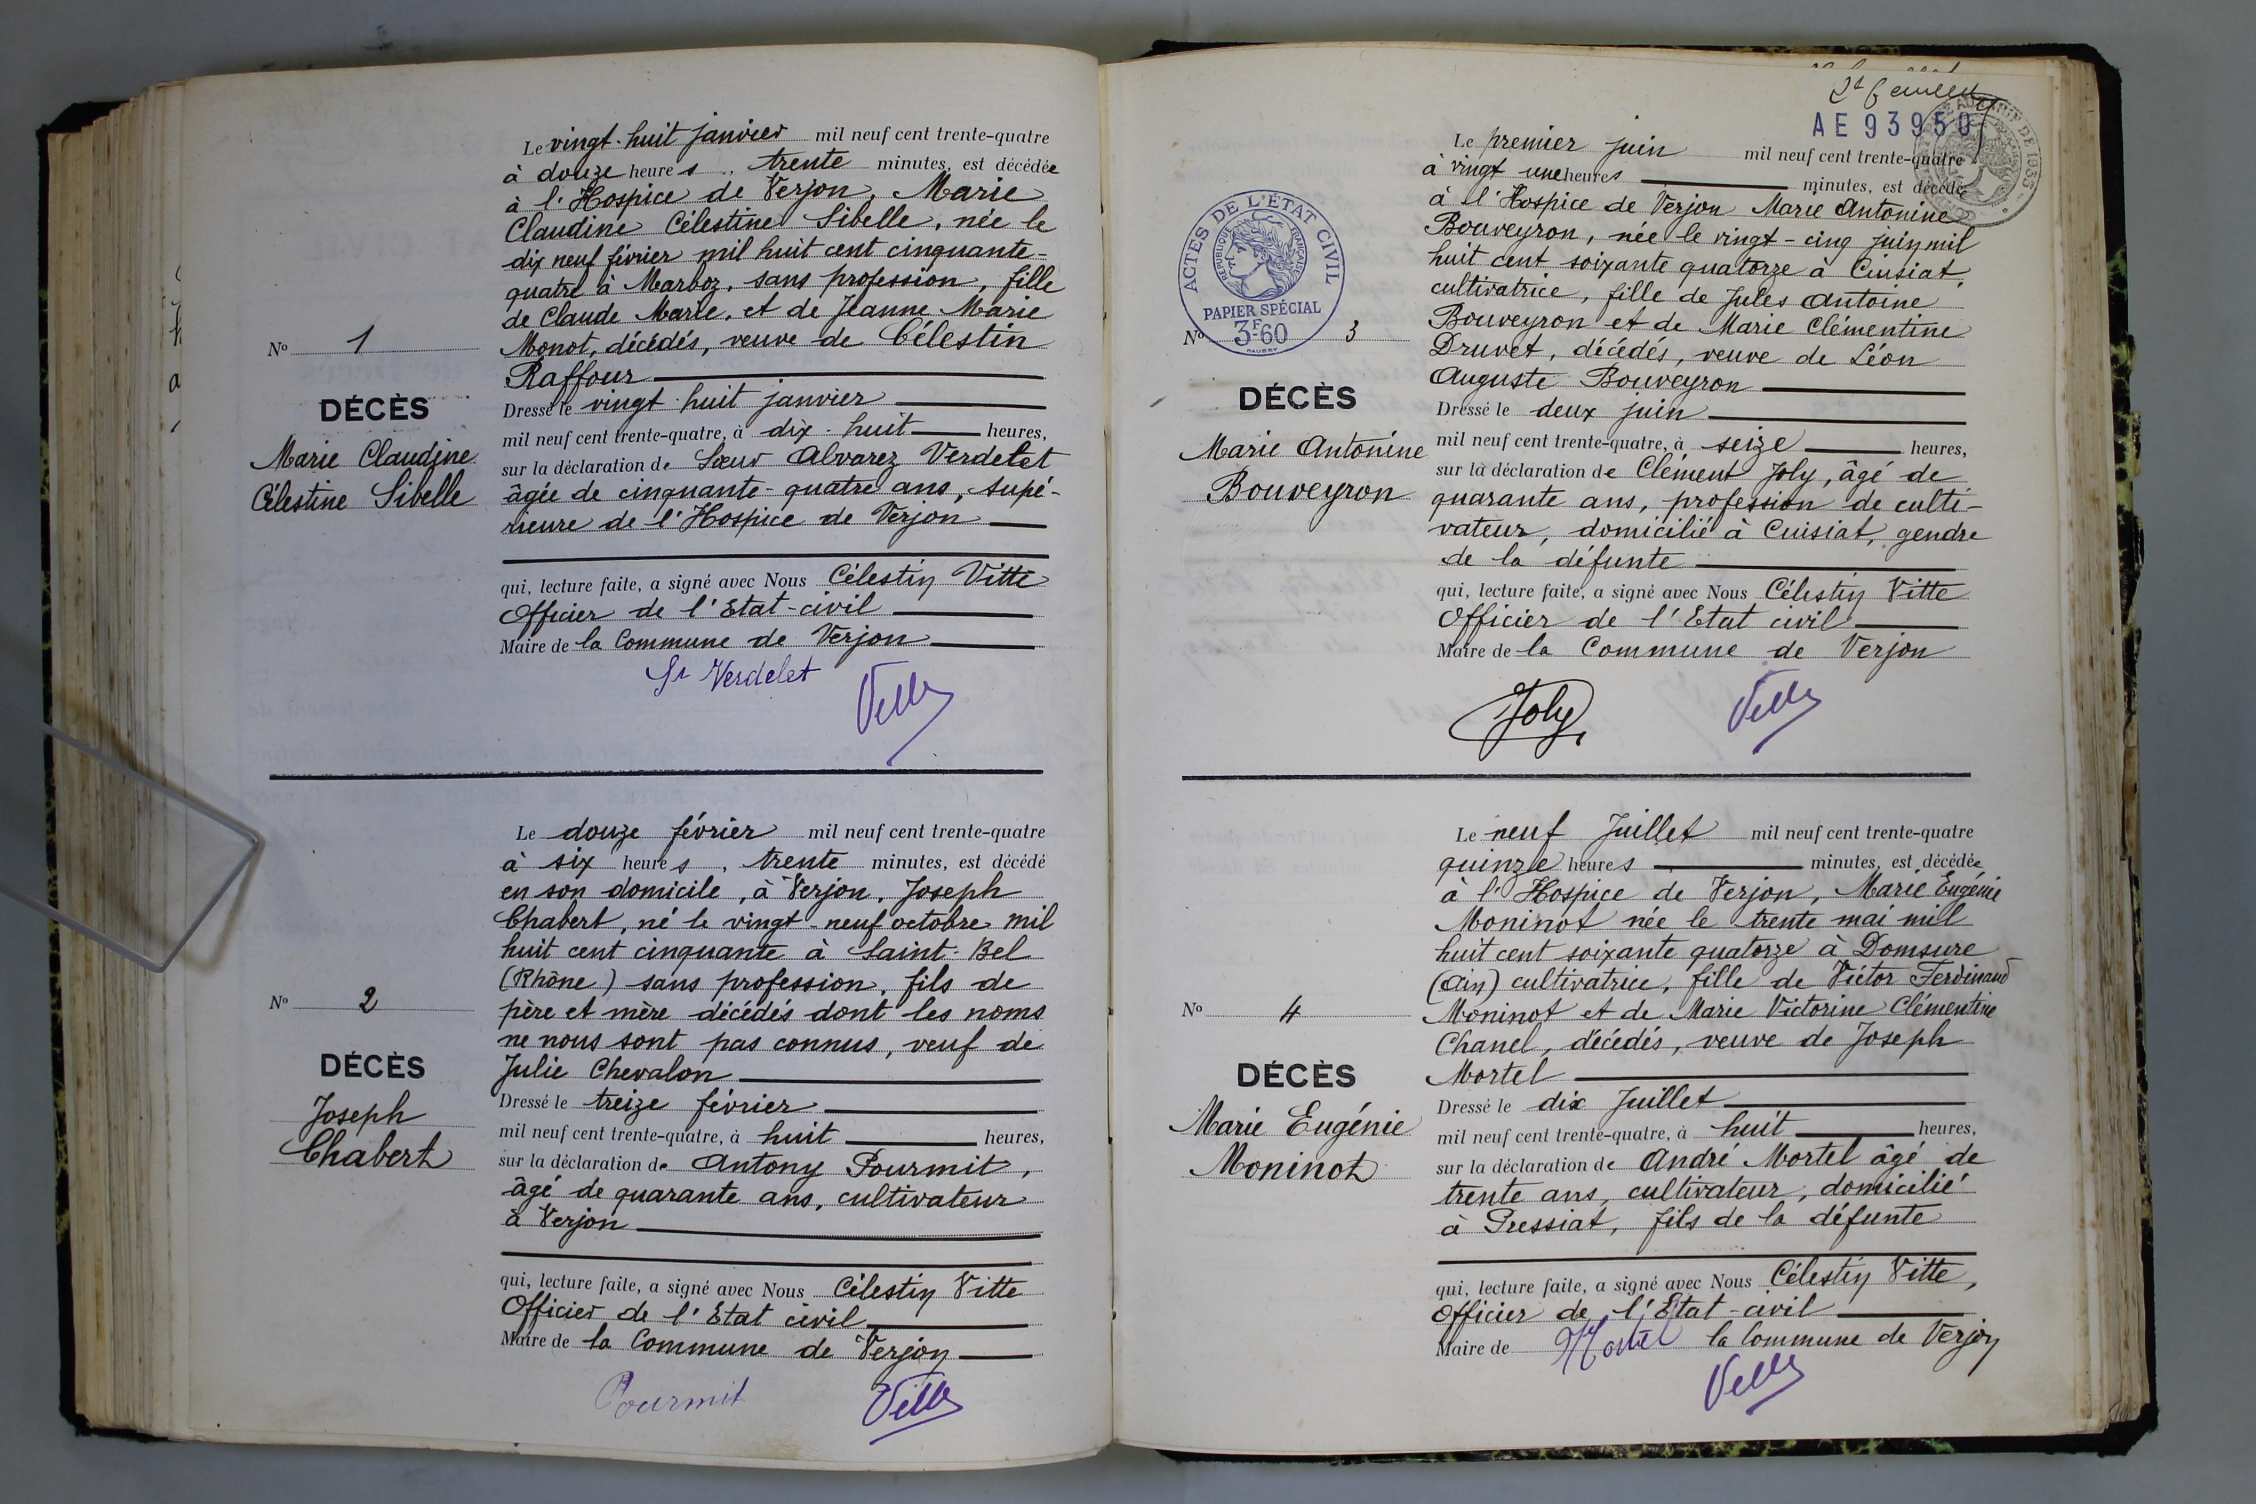 Le vingt-huit janvier mil neuf cent trente-quatre
à douze heures, trente minutes, est décédée
à l'Hospice de Verjon, Marie
Claudine Célestine Sibelle, née le
dix neuf février mil huit cent cinquante-
quatre à Marboz, sans profession, fille
de Claude Marie, et de Jeanne Marie
Monot, décédés, veuve de Célestin
Raffour
Dressé le vingt-huit janvier
mil neuf cent trente-quatre, à dix-huit heures,
sur la déclaration de Sœur Alvarez Verdelet
âgée de cinquante-quatre ans, supé-
rieure de l'Hospice de Verjon
qui, lecture faite, a signé avec Nous Célestin Vitte
Officier de l'Etat-civil
Maire de la Commune de Verjon
Sr Verdelet
N° 1
DÉCÈS
Marie Claudine
Célestine Sibelle
Le douze février mil neuf cent trente-quatre
à six heures, trente minutes, est décédé
en son domicile, à Verjon, Joseph
Chabert, né le vingt-neuf octobre mil
huit cent cinquante à Saint-Bel
(Rhône) sans profession, fils de
père et mère décédés dont les noms
ne nous sont pas connus, veuf de
Julie Chevalon
Dressé le treize février
mil neuf cent trente-quatre, à huit heures,
sur la déclaration de Antony Pourmit,
âgé de quarante ans, cultivateur
à Verjon
qui, lecture faite, a signé avec Nous Célestin Vitte
Officier de l'Etat civil
Maire de la Commune de Verjon
Pourmit
N° 2
DÉCÈS
Joseph
Chabert
AE 93950
ACTES DE L'ÉTAT CIVIL
RÉPUBLIQUE FRANÇAISE
PAPIER SPÉCIAL
3F60
Le premier juin mil neuf cent trente-quatre
à vingt une heures minutes, est décédée
à l'Hospice de Verjon Marie Antonine
Bouveyron, née le vingt-cinq juin mil
huit cent soixante quatorze à Cuisiat,
cultivatrice, fille de Jules Antoine
Bouveyron et de Marie Clémentine
Druvet, décédés, veuve de Léon
Auguste Bouveyron
Dressé le deux juin
mil neuf cent trente-quatre, à seize heures,
sur la déclaration de Clément Joly, âgé de
quarante ans, profession de culti-
vateur, domicilié à Cuisiat, gendre
de la défunte
qui, lecture faite, a signé avec Nous Célestin Vitte
Officier de l'Etat civil
Maire de la Commune de Verjon
Joly
N° 3
DÉCÈS
Marie Antonine
Bouveyron
Le neuf Juillet mil neuf cent trente-quatre
quinze heures minutes, est décédée
à l'Hospice de Verjon, Marie Eugénie
Moninot née le trente mai mil
huit cent soixante quatorze à Domsure
(Ain) cultivatrice, fille de Victor Ferdinand
Moninot et de Marie Victorine Clémentine
Chanel, décédés, veuve de Joseph
Mortel
Dressé le dix Juillet
mil neuf cent trente-quatre, à huit heures,
sur la déclaration de André Mortel âgé de
trente ans, cultivateur, domicilié
à Pressiat, fils de la défunte
qui, lecture faite, a signé avec Nous Célestin Vitte,
Officier de l'Etat-civil
Maire de la Commune de Verjon
Mortel
N° 4
DÉCÈS
Marie Eugénie
Moninot